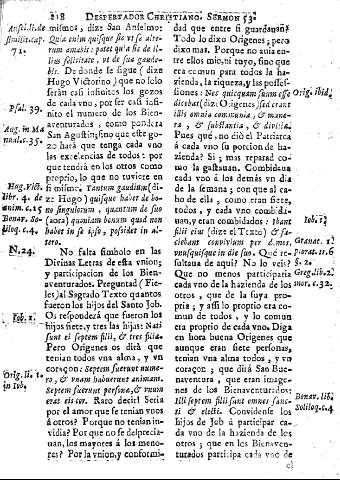 218 DESPERTADOR CHRISTIANO. SERMON 53.
mismos, dize San Anselmo:
Quia enim quisque sic vt se alte-
rum amabit: patet quia sic de il-
lius felicitate, vt de sua gaude-
bit. De donde se sigue (dize
Hugo Victorino) que no solo
serân casi infinitos los gozos
de cada vno, por ser casi infi-
nito el numero de los Bien-
aventurados, como pondera
San Agustin; sino que este go-
zo harà que tenga cada vno
las excelencias de todos: por
que tendrà en los otros como
proprio, lo que no tuviere en
si mismo. Tantum gaudium (di-
ze Hugo) quisque habet de bo-
no singulorum, quantum de suo
(Bona) quoniam bonum quod non
habet in se ipso, possidet in al-
tero.
No falta simbolo en las
Divinas Letras de esta vnion;
y participacion de los Bien-
aventurados. Preguntad (Fie-
les) al Sagrado Texto quantos
fueron los hijos del Santo Job.
Os responderà que fueron los
hijos siete, y tres las hijas: Nati
sunt ei septem filij, & tres filiæ.
Pero Origenes os dirà que
tenian todos vna alma, y vn
coraçon: Septem fuerunt nume-
ro, & vnam habuerunt animam.
Septem fuerunt personæ, & vnum
erat eis cor. Raro decir! Seria
por el amor que se tenian vnos
à otros? Porque no tenian in-
vidia? Por que no se desprecia-
uan, los mayores à los meno-
res? Por la vnion, y conformi-
Ansel. li. de
71.
Psal. 39.
Aug. in Ma
nual. c. 35.
Hug. Vict.
libr. 4. de
anim. c. 15
Bonav. So-
liloq. c. 4.
N. 24.
Iob. 1.
Orig. li. 1.
in Iob.
dad que entre si guardauan?
Todo lo dize Origenes; pero
dixo mas. Porque no auia en-
tre ellos mio, ni tuyo, sino que
era comun para todos la ha-
zienda, la riqueza, y las posses-
siones: Nec quicquam suum esse
dicebat (dize Origenes) sed erant
illis omnia communia, & mune-
ra, & substantia, & divitiæ.
Pues quê, no diò el Patriarca
à cada vno su porcion de ha-
zienda? Si; mas reparad co-
mo la gastauan. Combidaua
cada vno à los demás vn dia
de la semana; con que al ca-
bo de ella, como eran siete,
todos, y cada vno combida-
uan, y eran combidados: Ibant
filij eius (dize el Texto) & fa-
ciebant convivium per domos,
vnusquisque in die suo. Quê re-
sultaua de aqui? No lo veis?
Que no menos participaria
cada vno de la hazienda de los
otros, que de la suya pro-
pria; y assi lo proprio era co-
mun de todos, y lo comun
era proprio de cada vno. Diga
en hora buena Origenes que
aunque eran siete personas,
tenian vna alma todos, y vn
coraçon; que dirà San Bue-
naventura, que eran imagen-
nes de los Bienaventurados:
Illi septem filij sunt omnes sanc-
ti & electi. Convidense los
hijos de Job à participar ca-
da vno de la hazienda de los
otros; que en los Bienaven-
turados participa cada vno de
Orig. ibid.
Iob. 1.
Granat. 1.
Parat. n. 6
§. 2.
Greg. lib. 2.
mor. c. 32.
Bonav. lib.
Soliloq. c. 4